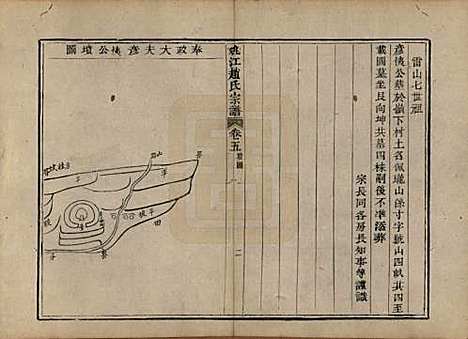 雷山七世祖
彥倓公墓於嶺下村土名佩瓏山係寸字號山四畝其四至
載圖墓坐艮向坤共墓四株嗣後不準添葬
宗長同各房長知事等謹識
姚江趙氏宗譜
卷五
二
奉政大夫彥倓公墳圖
山
田